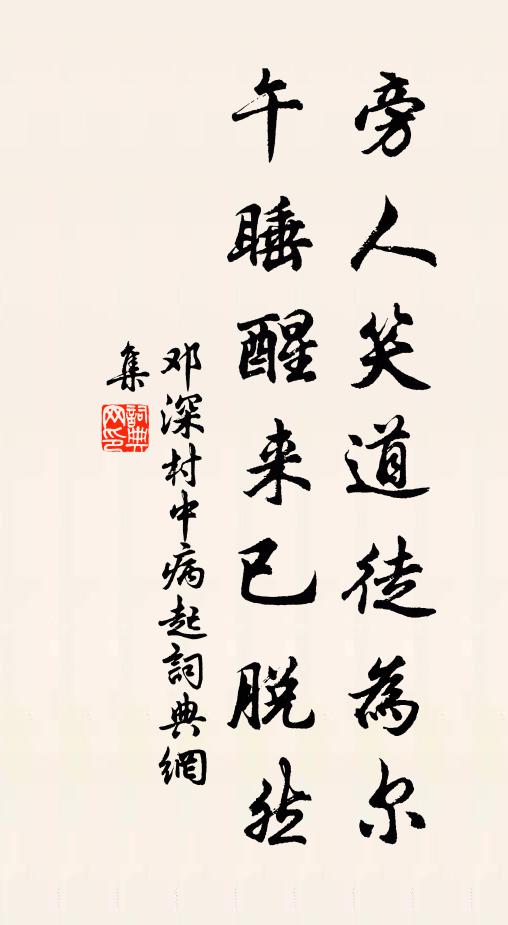 旁人笑道徒為尔
午睡醒来已脱然
邓深村中病起詞典網
集
詞典
网印